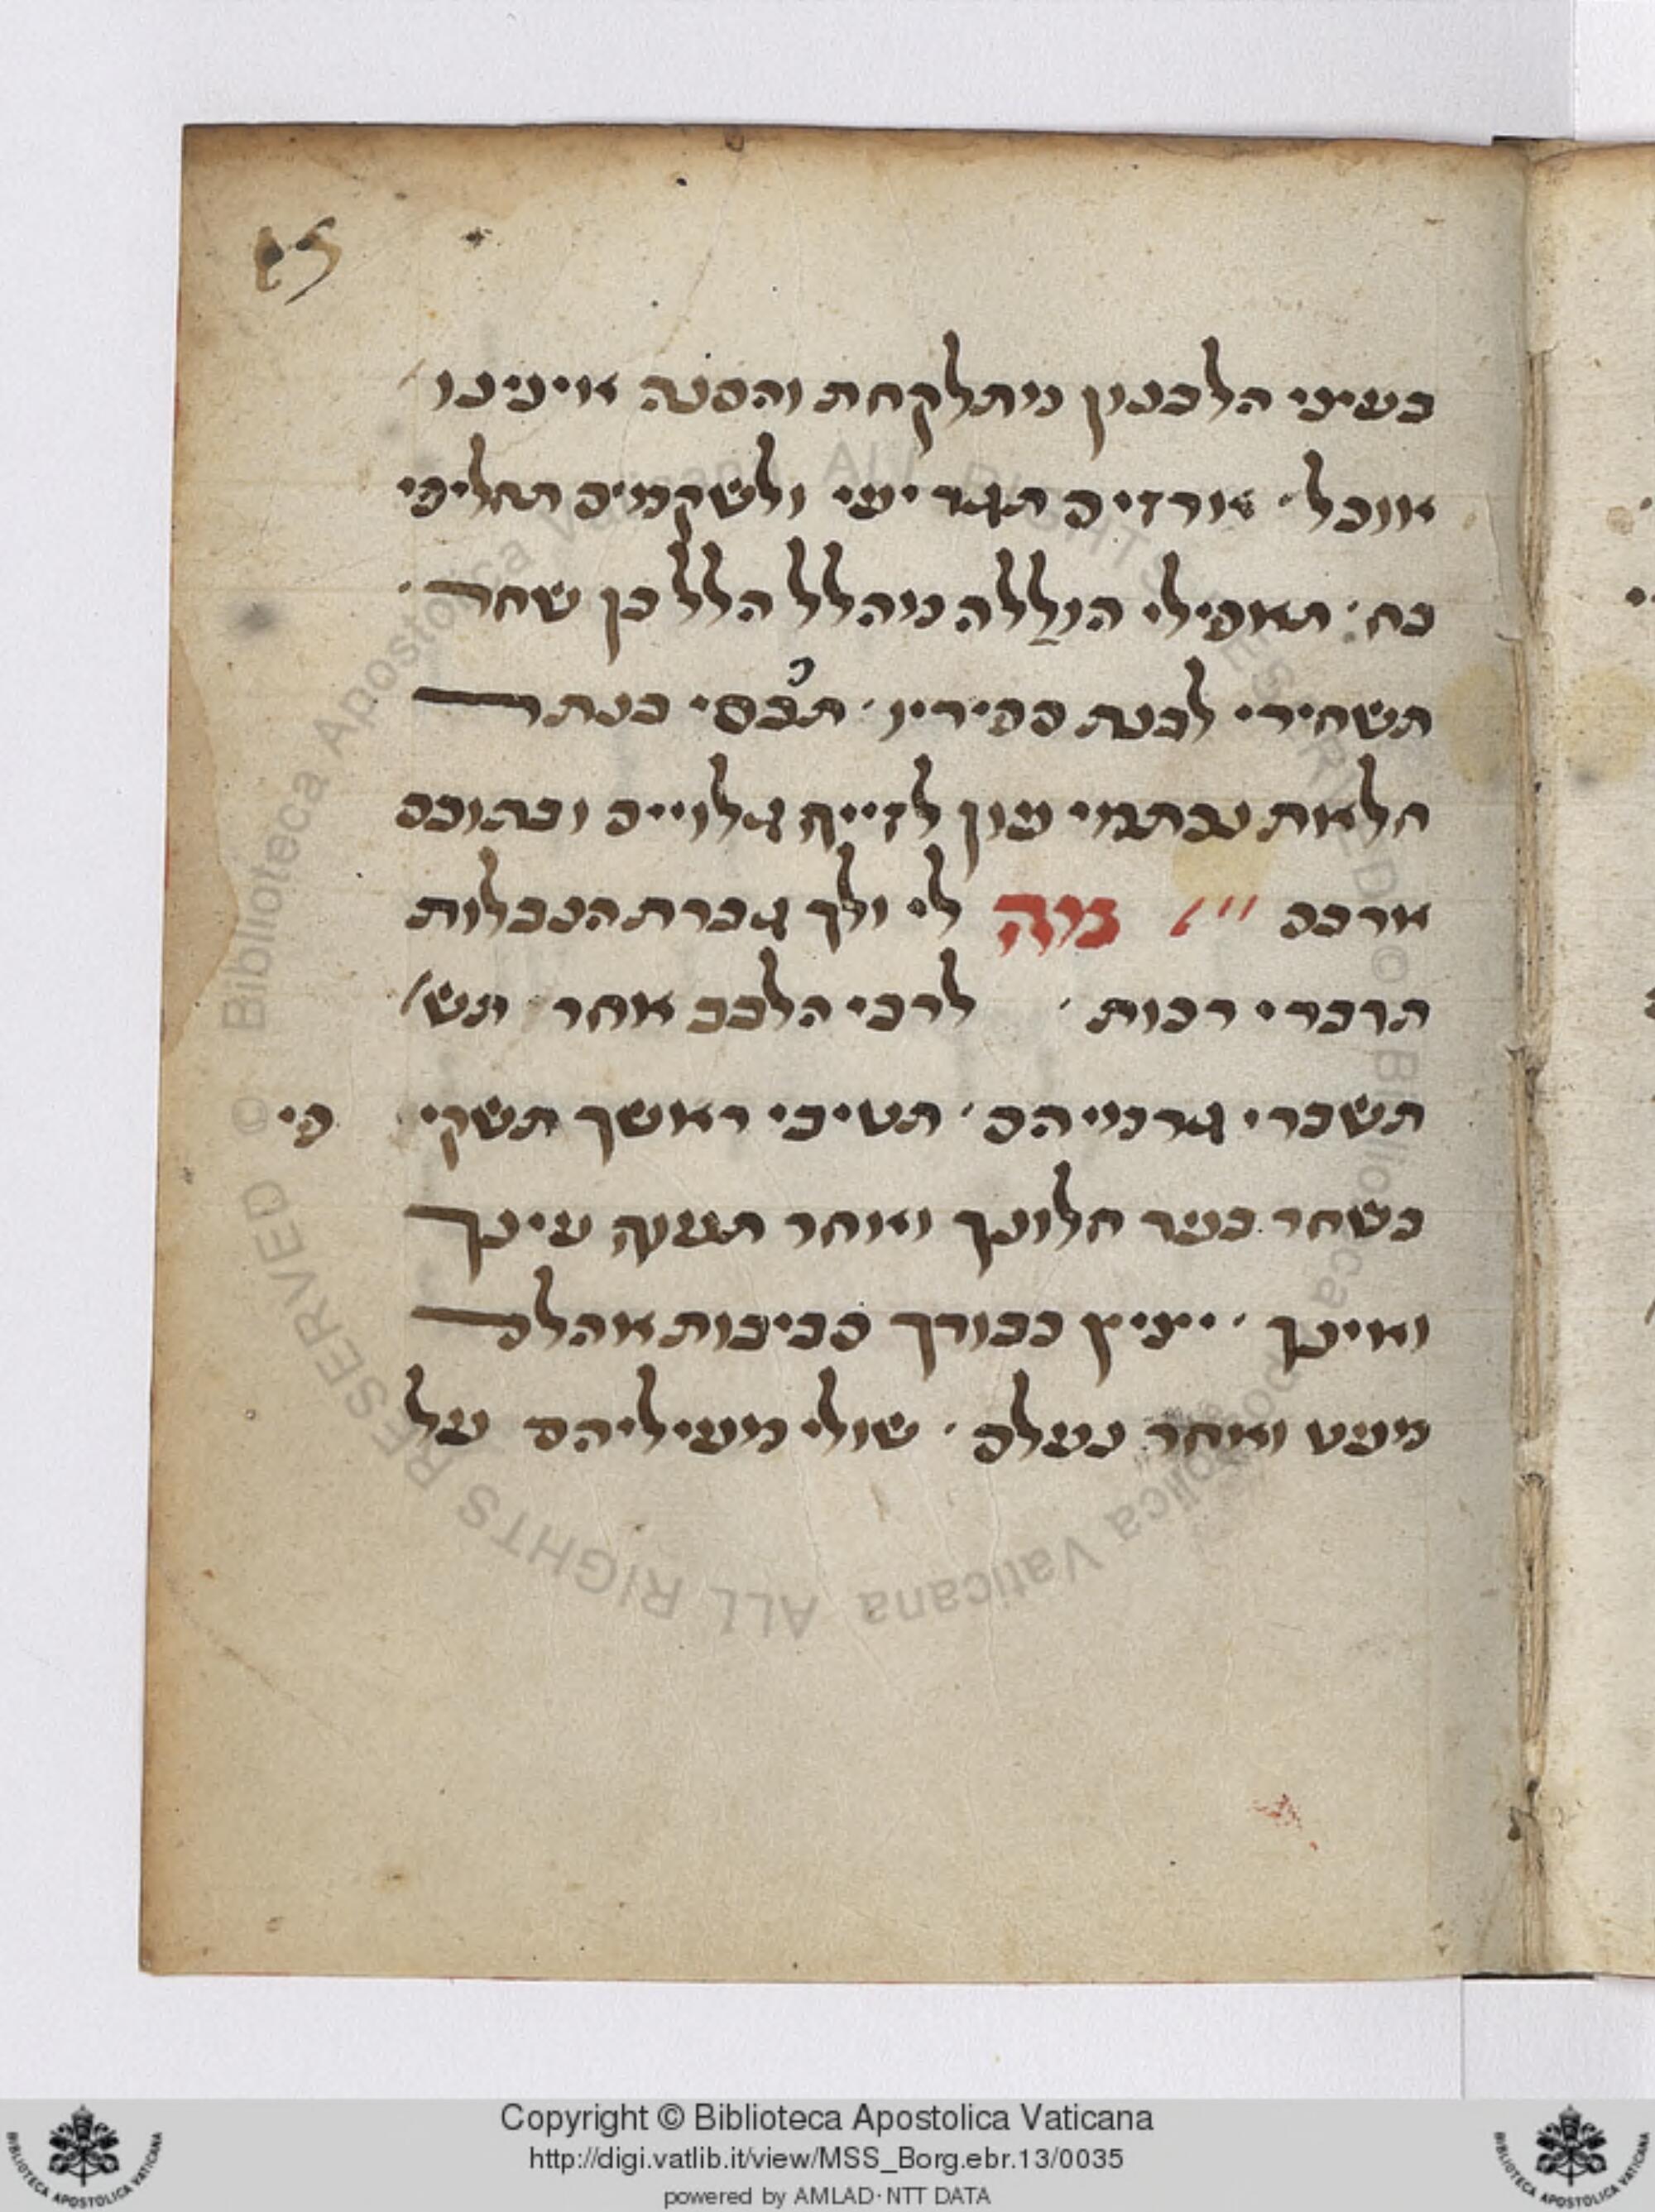 בעיני הלבנון מתלקחת והסנה איננו
אוכל. ארזים תגדיעי ולשקמים תחליפי
כח. תאפילי הוללה מהלל הלל בן שחר.
תשחירי לבנה ספירין. תכסי בנתר
חלאת עון לזייה גלויים
מה לי ולך גברת הנבלות
תדברי רכות. לרכי הלבב אחר תש
תשברי גרמיהם. תטיבי ראשך תשקי פי
כשחר בעד חלונך ואחר עינך
ואינך. יציץ כבודך סביבות אהלם
מעט ואחר נעלם. שולי מעיליהם על
Copyright © Biblioteca Apostolica Vaticana
http://digi.vatlib.it/view/MSS_Borg.ebr.13/0035
powered by AMLAD·NTT DATA